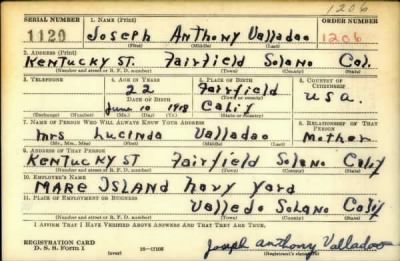 1206
SERIAL NUMBER 1. NAME (Print) ORDER NUMBER
1129 Joseph Anthony Valladao 1206
(First) (Middle) (Last)
2. ADDRESS (Print)
Kentucky St. Fairfield Solano Cal.
(Number and street or R. F. D. number) (Town) (County) (State)
3. TELEPHONE 4. AGE IN YEARS 5. PLACE OF BIRTH 6. COUNTRY OF CITIZENSHIP
22 Fairfield
DATE OF BIRTH (Town or county) U.S.A.
June 10 1918 Calif
(Exchange) (No.) (Mo.) (Day) (Yr.) (State or country)
7. NAME OF PERSON WHO WILL ALWAYS KNOW YOUR ADDRESS 8. RELATIONSHIP OF THAT PERSON
Mrs Lucinda Valladao Mother
(Mr., Mrs., Miss) (First) (Middle) (Last)
9. ADDRESS OF THAT PERSON
Kentucky St Fairfield Solano Calif
(Number and street or R. F. D. number) (Town) (County) (State)
10. EMPLOYER'S NAME
Mare Island Navy Yard
11. PLACE OF EMPLOYMENT OR BUSINESS
Vallejo Solano Calif
(Number and street or R. F. D. number) (Town) (County) (State)
I AFFIRM THAT I HAVE VERIFIED ABOVE ANSWERS AND THAT THEY ARE TRUE.
REGISTRATION CARD
D. S. S. Form 1 (over) Joseph Anthony Valladao